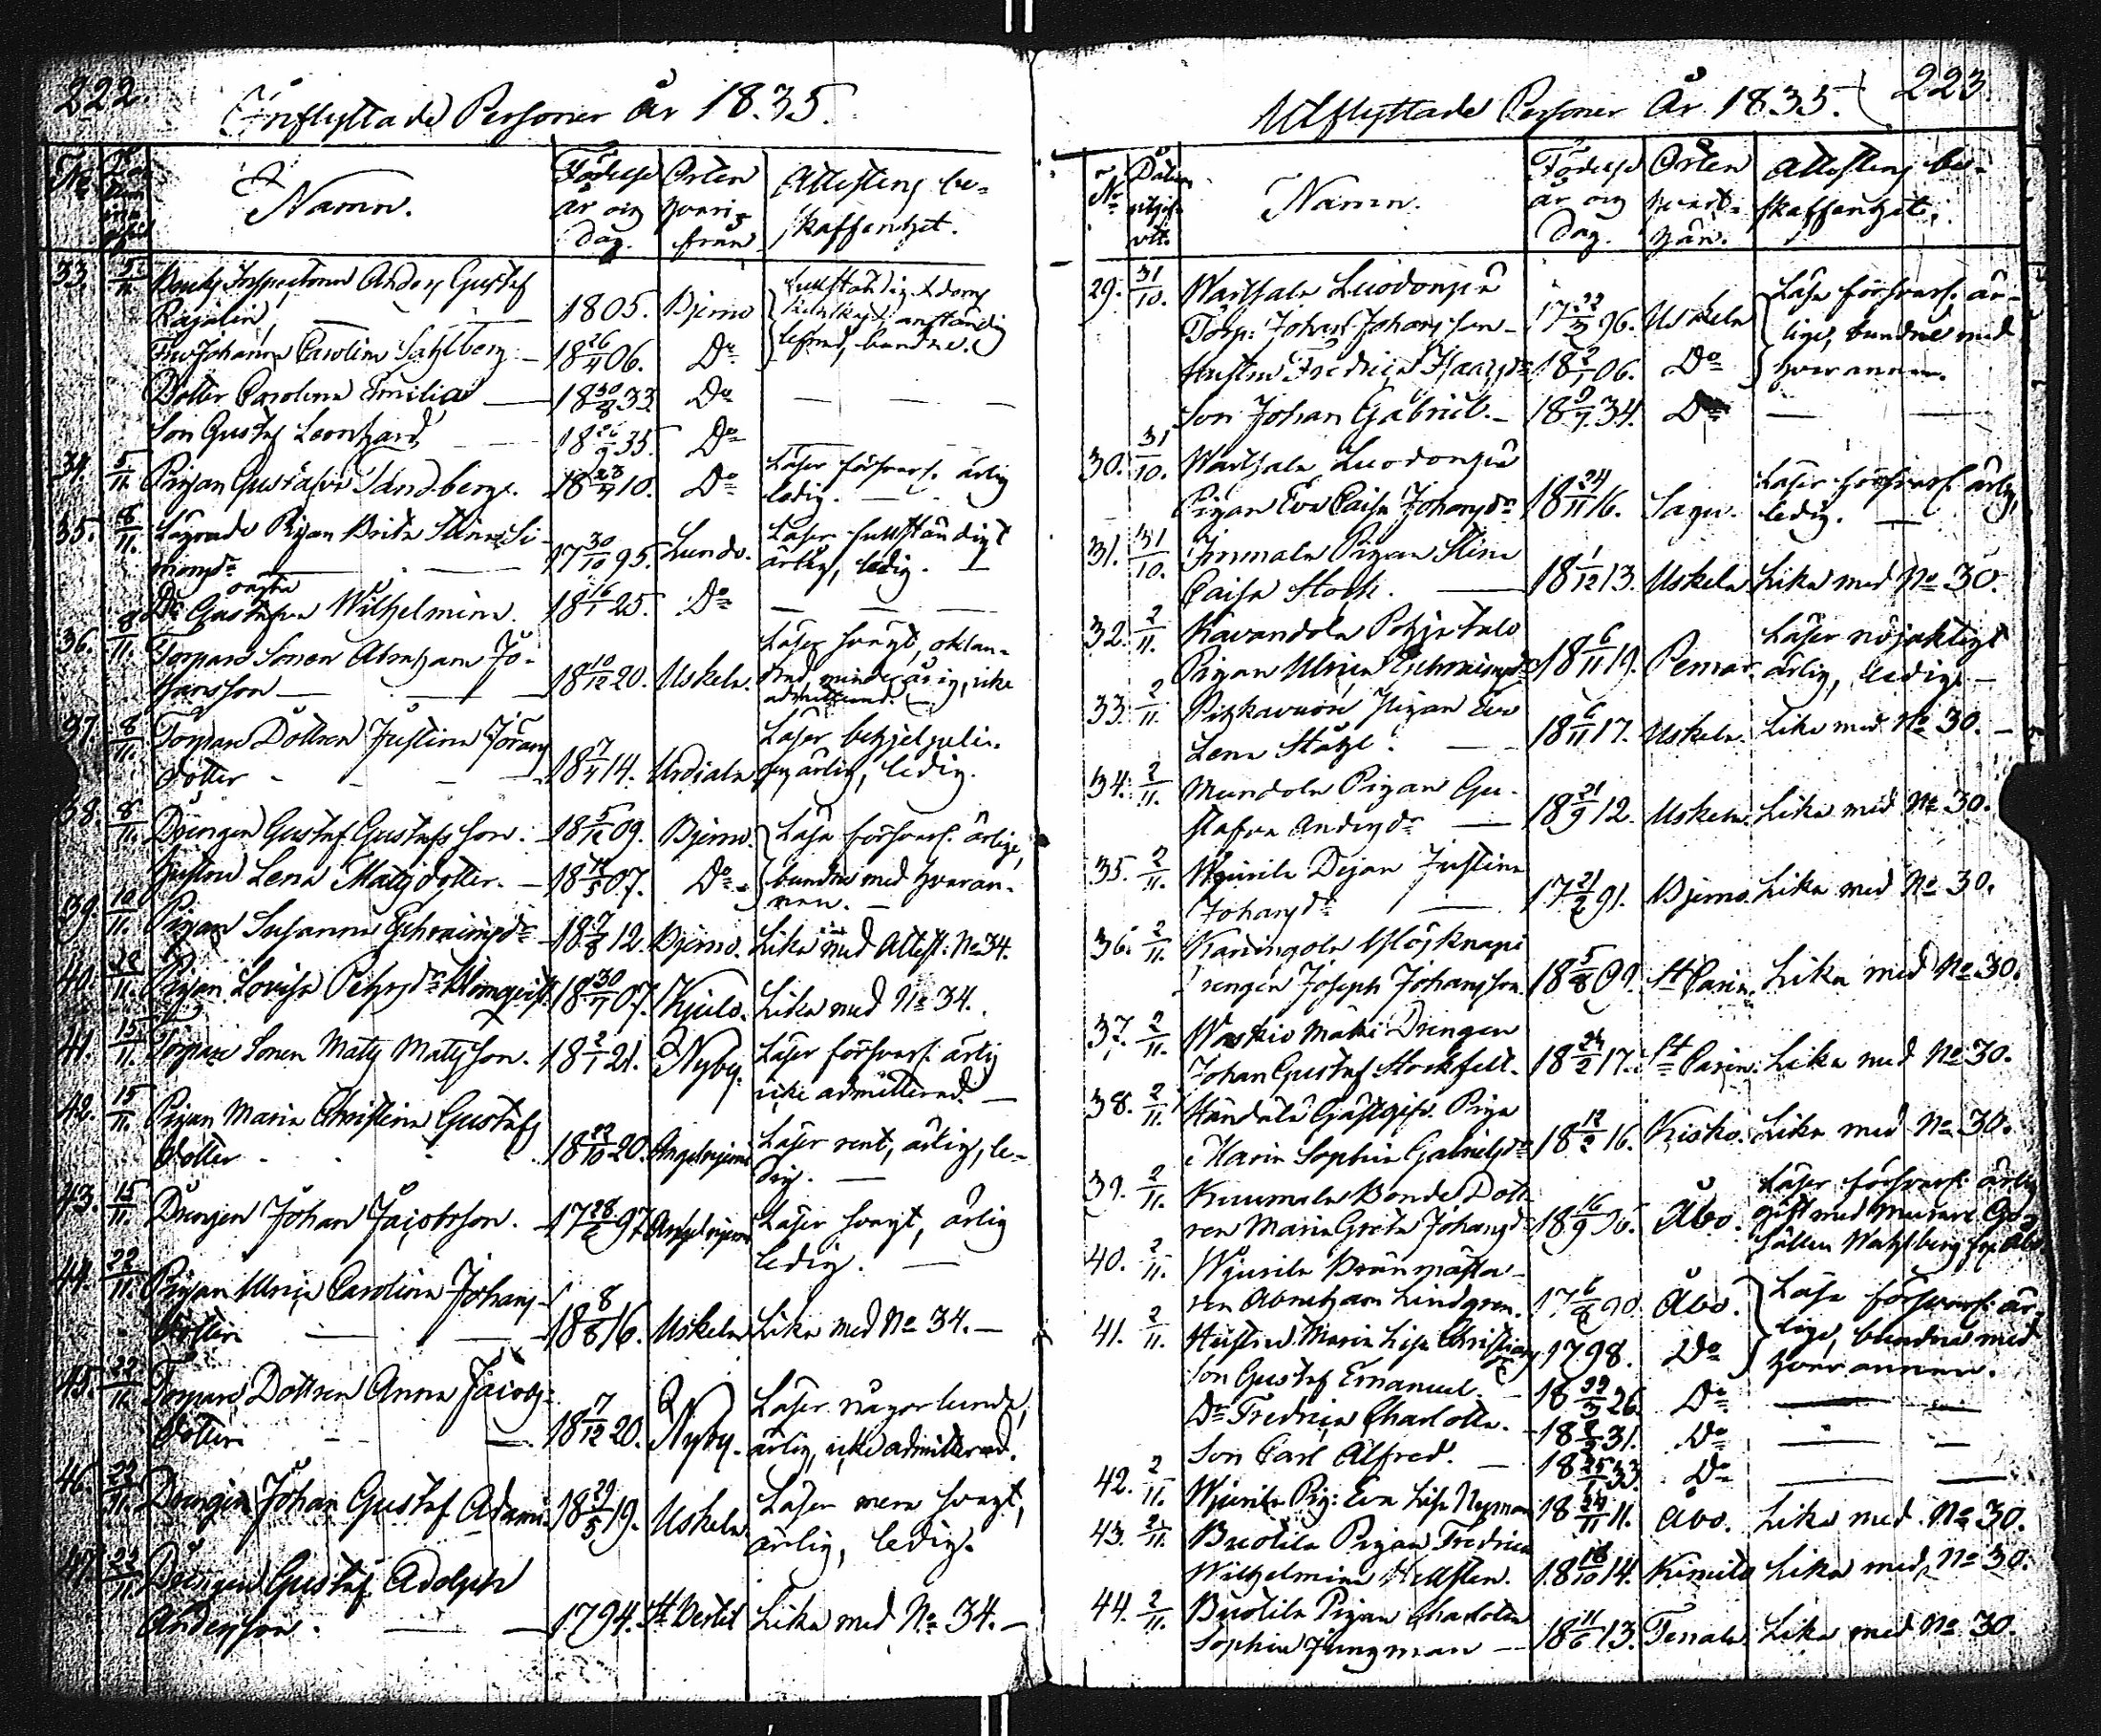 222.
Inflyttade Personer År 1835.
No
Namn.
Födelse år och Dag.
Orten hvari- från
Attestens be- skaffenhet.
33. 5/11. Anders Gustaf
Rajalin, 1805. Bjerno
Fru Johanna Carolina Sahlberg 18 26/4 06. Do
Dotter Carolina Emilia 18 30/8 33 Do
Son Gustaf Leonhard 18 26/9 35. Do
34. 5/11 Pigan Gustafva Sandberg. 18 23/4 10. Do Läser försvarl. ärlig
ledig.
35. 8/11. Pigan Brita Stina Si-
monsdr 17 30/10 95. Lundo. Läser fullständigt
ärlig, ledig.
oägta
Dr Gustafva Wilhelmina. 18 16/1 25. Do
36. 8/11. Torpare Sonen Abraham Jo-
hansson 18 10/12 20. Uskela. Läser svagt, oklan-
drad, minderårig, icke
admitterad.
37. 8/11. Torpare Dottren Justina Jörans
dotter 18 7/4 14. Urdiala Läser behjelpeli-
gen, ärlig, ledig.
38. 8/11. Drengen Gustaf Gustafsson. 18 5/12 09. Bjerno. Läsa försvarl. ärlige,
hustru Lena Matsdotter. 18 07. Do bundne med hvaran-
nan.
39. 10/11. Pigan Susanna Ephraimsdr 18 12. Bjerno. Lika med Attest. No 34.
40. Pigan Lovisa Petersdr Blomqvist. 18 30/7 07. Kjulo. Lika med No 34.
41. 15/11. Torpare Sonen Mats Matsson. 18 2/1 21. Nyby. Läser försvarl. ärlig
icke admitterad.
42. 15/11. Pigan Maria Christina Gustafs
dotter 18 22/10 20. Angelniemi Läser rent, ärlig, le-
dig.
43. 15/11. Drengen Johan Jacobsson. 17 28 97. Angelniemi Läser svagt, ärlig
ledig.
44. 22/11. Pigan Ulrica Carolina Johans-
dotter 18 8/8 16. Uskela Lika med No 34.
45. 22/11. Torpare Dottren Anna Jacobs-
dotter 18 7/12 20. Nyby. Läser någorlunda,
ärlig, icke admitterad.
46. 22/11. Drengen Johan Gustaf Adams- 18 29/5 19. Uskela Läser mera svagt,
ärlig, ledig.
47. 22/11. Drengen Gustaf Adolph
Andersson. 1794. St Bertil Lika med No 34.
223
Utflyttade Personer År 1835.
No
Namn.
Födelse år och Dag.
Orten hvart- hän.
Attestens be- skaffenhet.
29. 31/10. Warttala Luodonpää
Torp. Johan Johansson 17 96. Uskela Läsa försvarl. är-
lige, bundne med
hustru Fredrica Isacsdr 18 2/1 06. Do hvar annan.
Son Johan Gabriel. 18 9/7 34. Do
30. 31/10. Warttala Luodonpää
Pigan Eva Caisa Johansdr 18 24/11 16. Sagu. Läser försvarl. ärlig,
ledig.
31. 31/10. Inmala Pigan Stina
Caisa Stock. 18 1/12 13. Uskela Lika med No 30.
32. 2/11. Kavandola Pohjatalo
Pigan Ulrica Ephraimsdr 18 6/11 19. Pemar Läser nöjaktigt
ärlig, ledig.
33. 2/11. Pigan Eva
Lena Ståhl. 18 6/11 17. Uskela. Lika med No 30.
34. 2/11. Pigan Gu-
stafva Andersdr 18 21/9 12. Uskela. Lika med No 30.
35. 2/11. Wiurila Dejan Justina
Johansdr 17 21/2 91. Bjerno. Lika med No 30.
36. 2/11. Drengen Joseph Johansson. 18 5/8 09. St Carin. Lika med No 30.
37. 2/11. Waskio Mäki Drengen
Johan Gustaf Stockfelt. 18 24/2 17. St Carin. Lika med No 30.
38. 2/11. Händälä Gästgifv. Piga
Maria Sophia Gabrielsdr 18 12/2 16. Kisko. Lika med No 30.
39. 2/11. Bonde Dott-
ren Maria Greta Johansdr 18 16/9 Åbo. Läser försvarl. ärlig
gift med Murare Ge-
sällen Wahlberg fr. Åbo.
40. 2/11. Wiurila Bränmästa-
ren Abraham Lindgren. 17 6 90. Åbo. Läsa försvarl. är-
lige, bundna med
41. 2/11. Hustru Maria Lisa Christians 1798. Do hvar annan.
Son Gustaf Emanuel. 18 26. Do
Dr Fredrica Charlotta. 18 31. Do
Son Carl Alfred. 18 33. Do
42. 2/11. Wiurila Pig: Eva Lisa Nyman 18 24/11 11. Åbo. Lika med No 30.
43. 2/11. Buotila Pigan Fredrica
Wilhelmina Hellsten. 18 18/10 14. Kimito Lika med No 30.
44. 2/11. Buotila Pigan Charlotta
Sophia Jungman 18 11/6 13. Tenala. Lika med No 30.